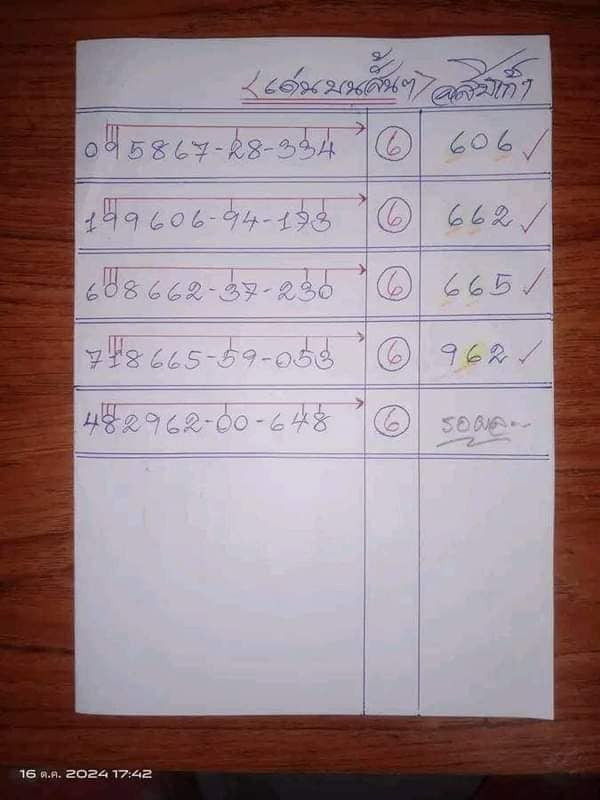 <เด่นบนสั้นๆ>
095867-28-334 6 606 ✓
199606-94-173 6 662 ✓
608662-37-230 6 665 ✓
718665-59-053 6 962 ✓
482962-00-648 6 รอผล..
16 ต.ค. 2024 17:42